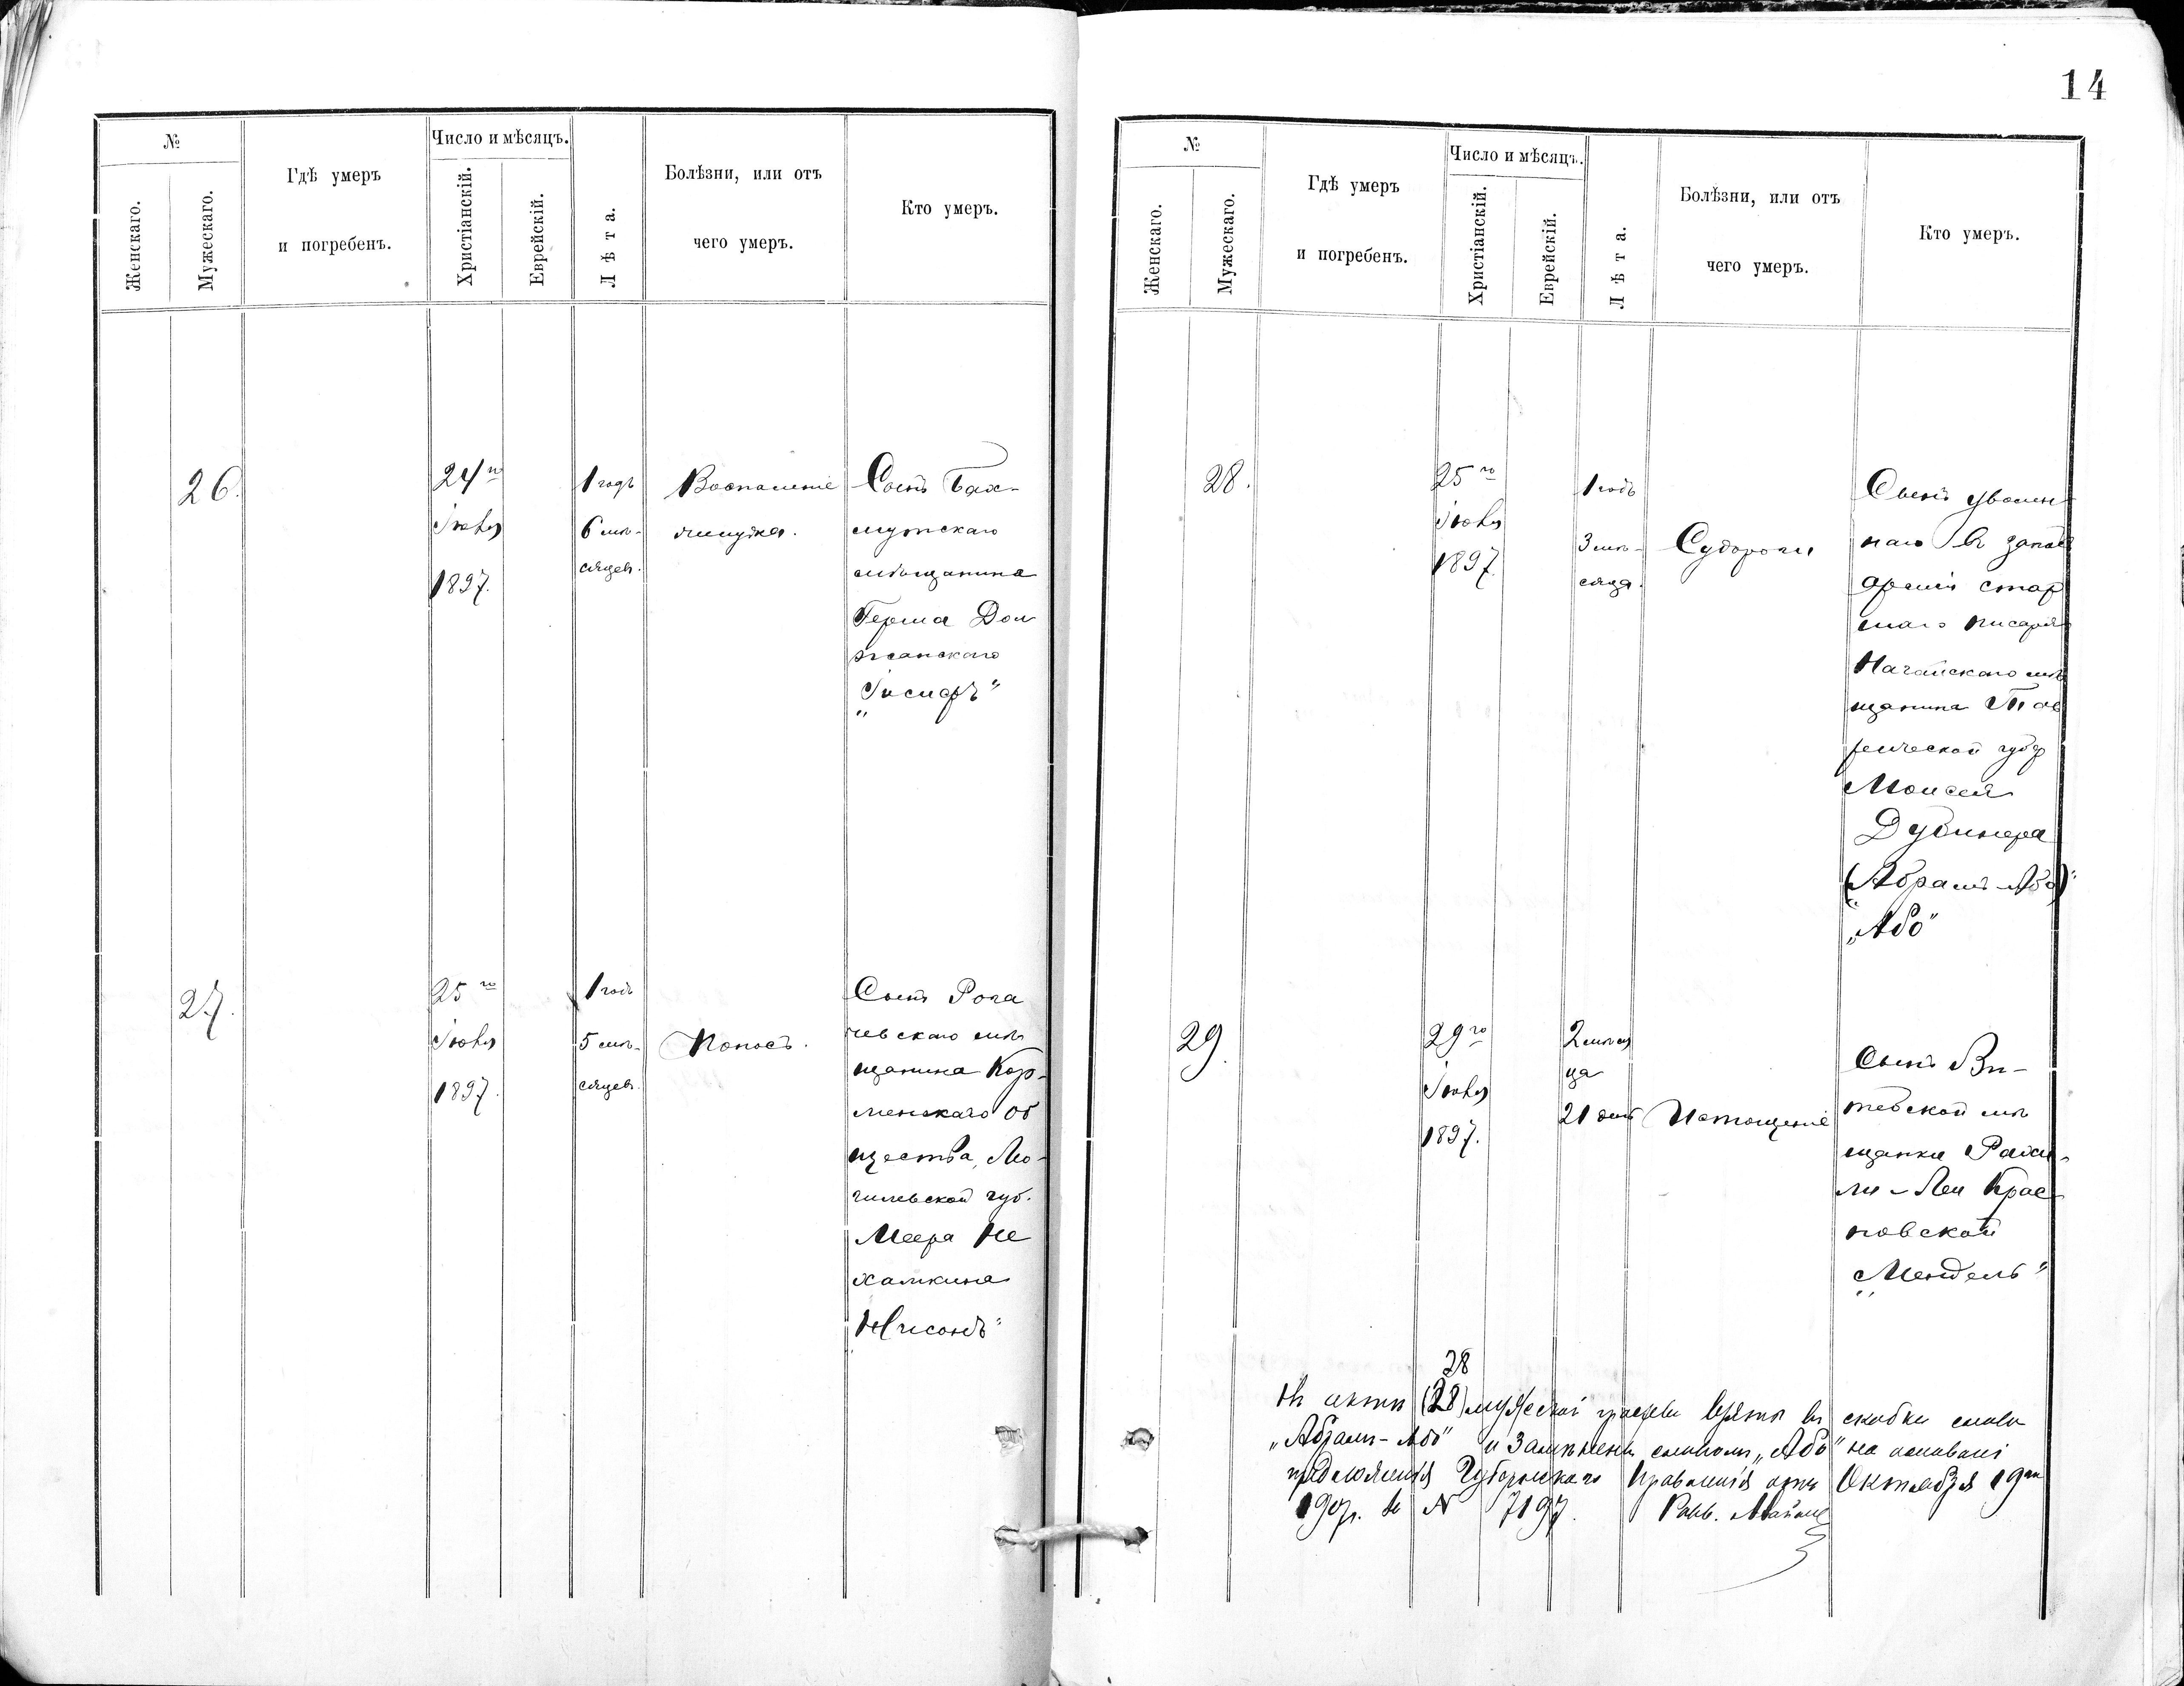 14
№
Женскаго.
Мужескаго.
Гдѣ умеръ
и погребенъ.
Число и мѣсяцъ.
Христіанскій.
Еврейскій.
Лѣта.
Болѣзни, или отъ
чего умеръ.
Кто умеръ.
26.
24го
Іюня
1897.
1 годъ
6 мѣ-
сяцевъ.
Воспаленіе
Сынъ Бах-
мутскаго
мѣщанина
Герша Дол
жанскаго
„Іосифъ"
27.
25го
Іюня
1897.
1 годъ
5 мѣ-
сяцевъ.
Поносъ.
Сынъ Рога
чевскаго мѣ
щанина Кор-
менскаго об
щества, Мо-
гилевской губ.
Меера Не
хамкина
„Нисонъ"
№
Женскаго.
Мужескаго.
Гдѣ умеръ
и погребенъ.
Число и мѣсяцъ.
Христіанскій.
Еврейскій.
Лѣта.
Болѣзни, или отъ
чего умеръ.
Кто умеръ.
28.
25го
Іюня
1897.
1 годъ
3 мѣ-
сяца.
Судороги
Сынъ уволен
наго въ запас
арміи стар
шаго писаря
Ногайскаго мѣ
щанина Тав
рической губ
Моисея
Дубинера
(„Абрамъ-Або")
„Або"
29.
29го
Іюня
1897.
2 мѣся
ца
21 день
Истощеніе
Сынъ Ви-
тебской мѣ
щанки Рахи-
ли-Леи Крас
новской
„Мендель"
28
Въ актѣ (28) мужеской графы взято въ скобки слово
„Абрамъ-Або" и замѣнено словомъ „Або" на основаніи
предложенія Губернскаго Правленія отъ Октября 19го
190 г. за N 7197. Равв.